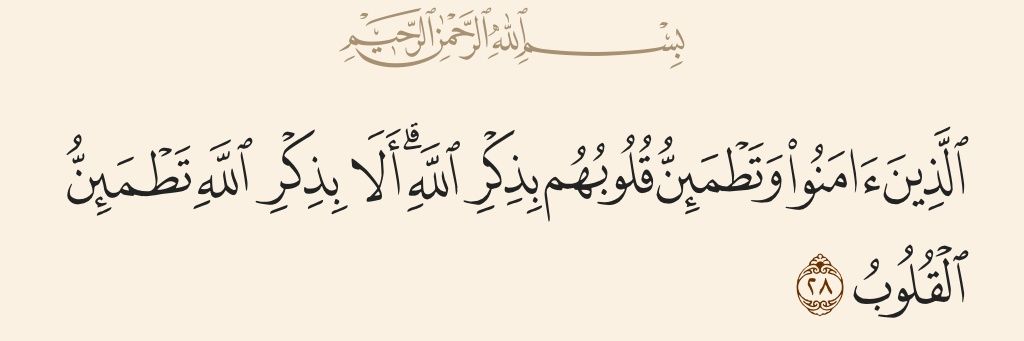 بِسْمِ ٱللَّهِ ٱلرَّحْمَٰنِ ٱلرَّحِيمِ
ٱلَّذِينَ ءَامَنُوا۟ وَتَطْمَئِنُّ قُلُوبُهُم بِذِكْرِ ٱللَّهِ ۗ أَلَا بِذِكْرِ ٱللَّهِ تَطْمَئِنُّ
ٱلْقُلُوبُ ٢٨